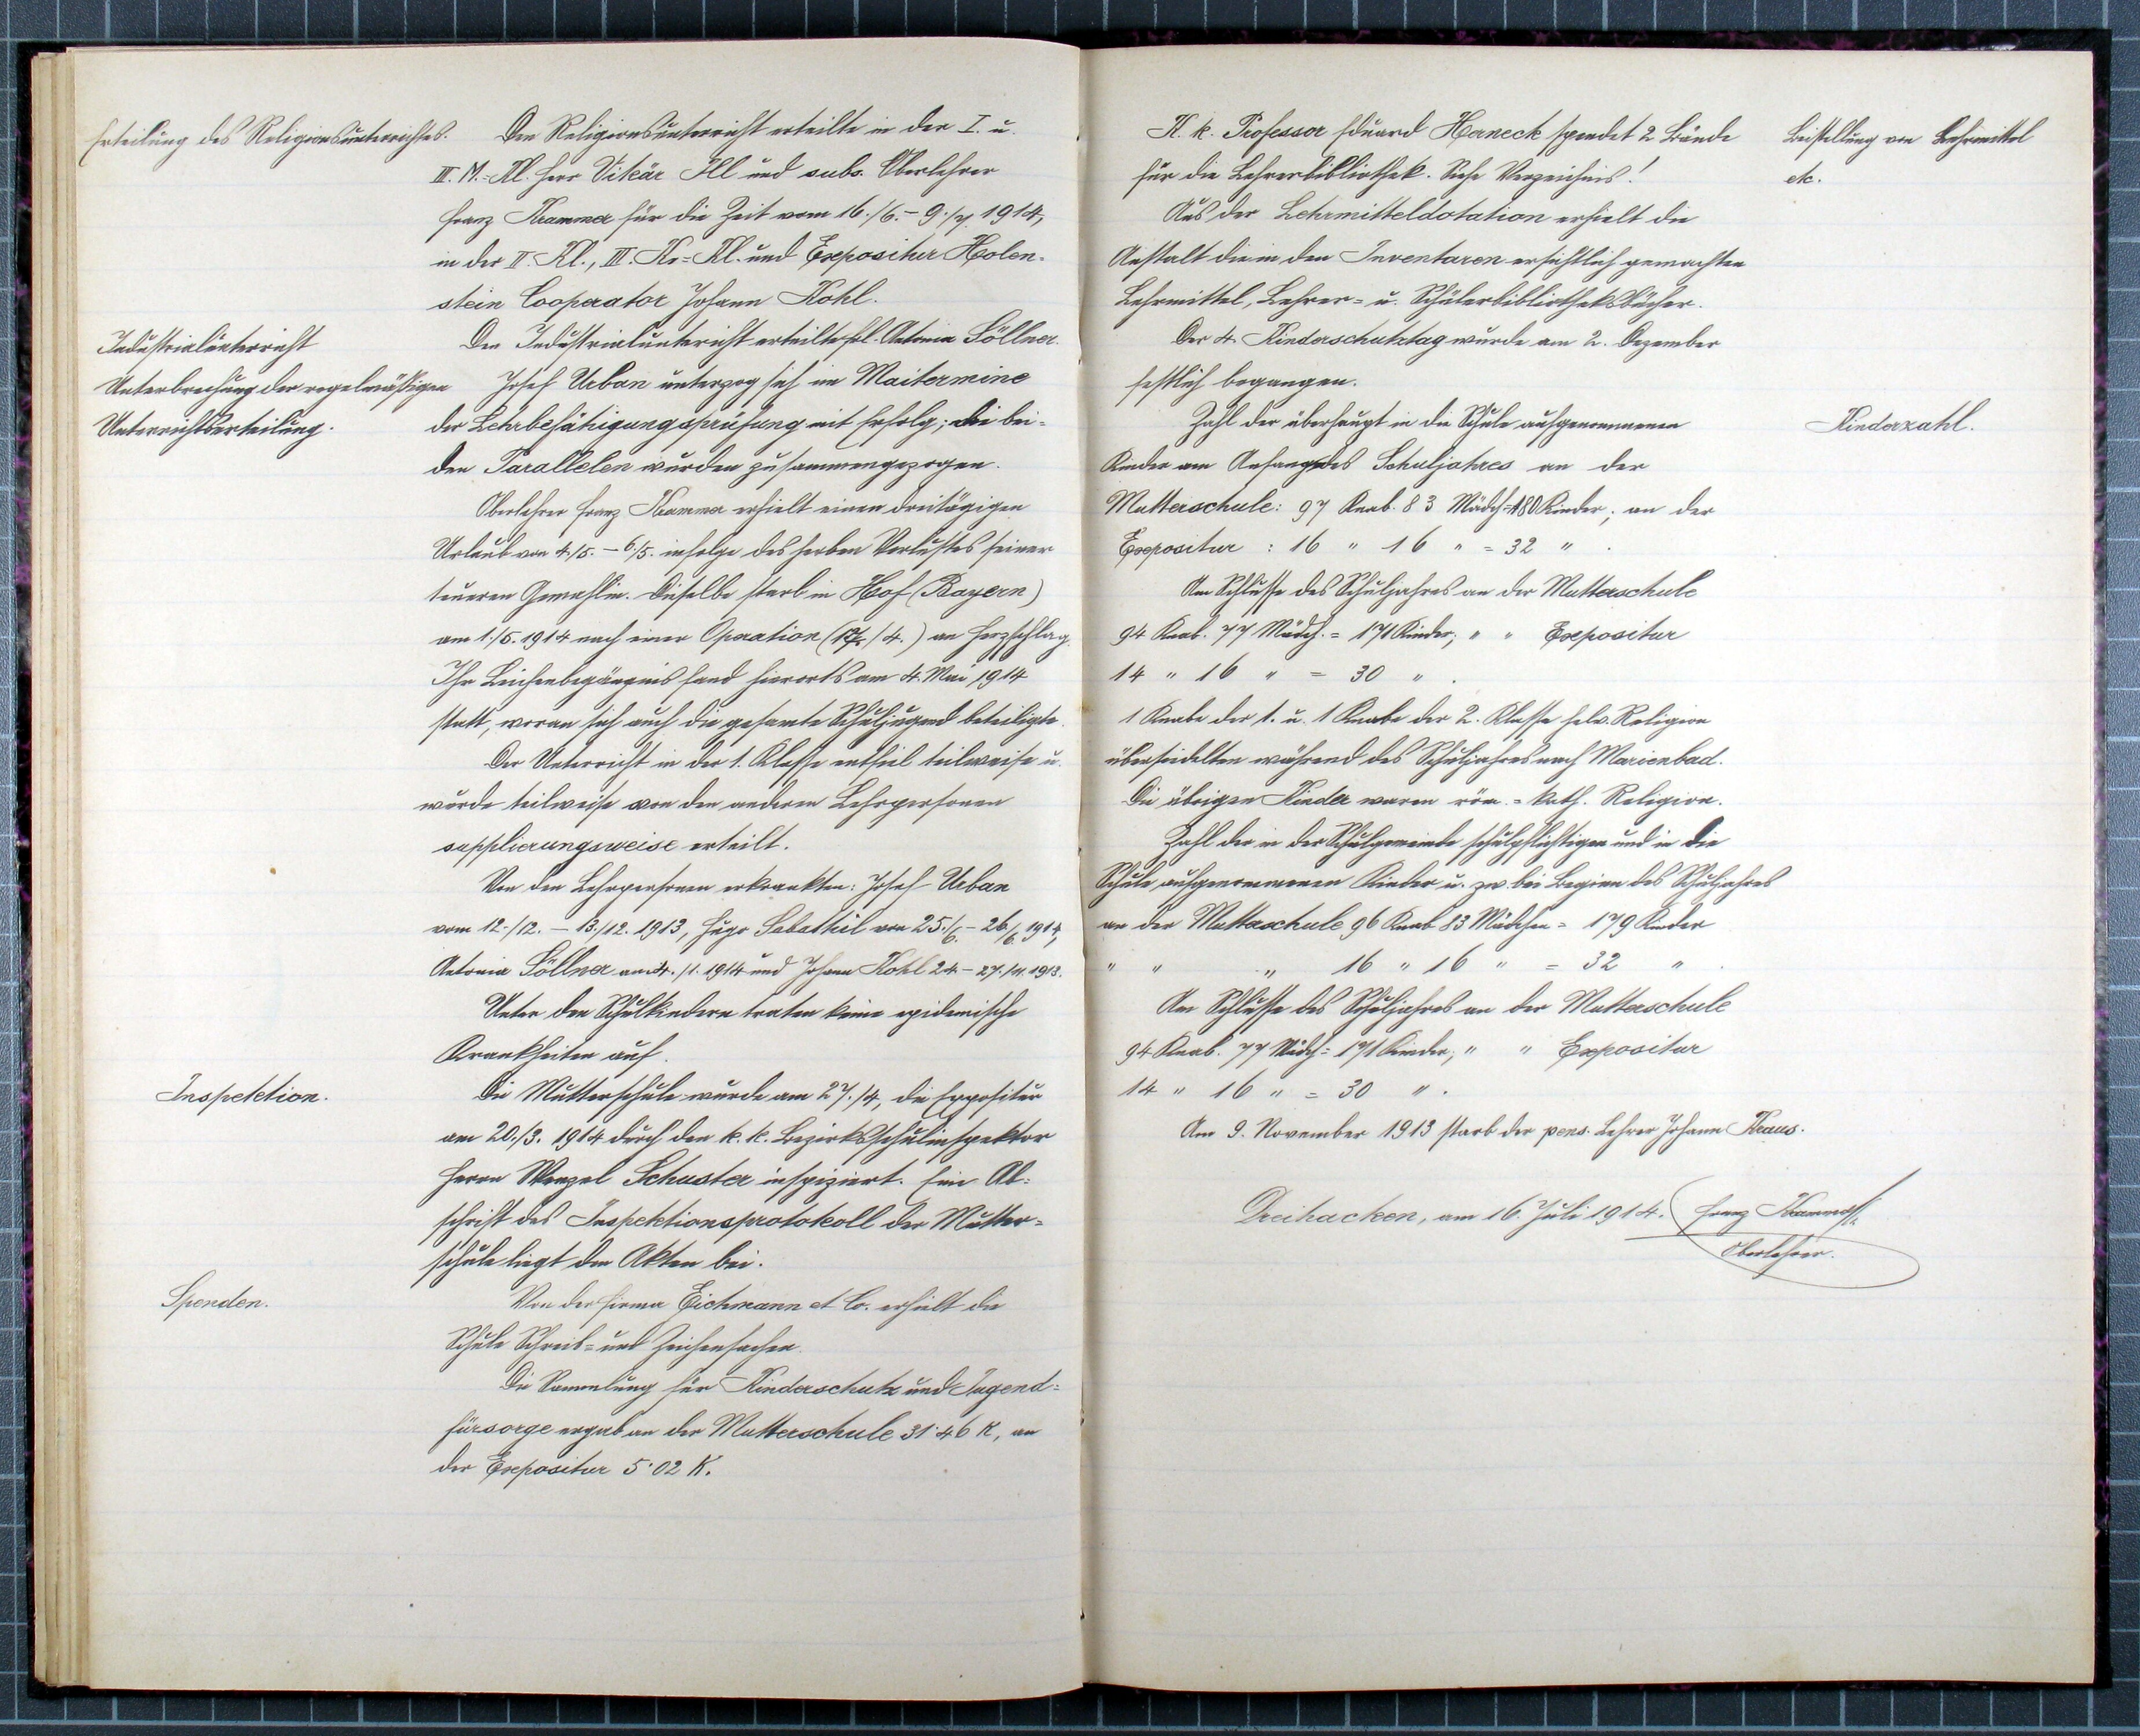 Erteilung des Religionsunterrichtes.
Den Religionsunterricht erteilte in der I. u.
III. M.=Kl. Herr Vikär Ill und subs. Oberlehrer
Franz Krammer für die Zeit vom 16./6.-9./7. 1914,
in der II. Kl., III. Kn=Kl. und Expositur Holen-
stein Cooperator Johann Kohl.
Industrialunterricht
Den Industrialunterricht erteilte Frl. Antonia Söllner.
Unterbrechung der regelmäßigen
Unterrichtserteilung.
Josef Urban unterzog sich im Maitermine
der Lehrbefähigungsprüfung mit Erfolg; die bei=
den Parallelen wurden zusammengezogen.
Oberlehrer Franz Krammer erhielt einen dreitägigen
Urlaub von 4./5. - 6./5. infolge des herben Verlustes seiner
teueren Gemahlin. Dieselbe starb in Hof (Bayern)
am 1./5. 1914 nach einer Operation an Herzschlag.
Ihr Leichenbegängnis fand hierorts am 4. Mai 1914
statt, woran sich auch die gesamte Schuljugend beteiligte.
Der Unterricht in der 1. Klasse entfiel teilweise u.
wurde teilweise von den anderen Lehrpersonen
supplierungsweise erteilt.
Von den Lehrpersonen erkrankten: Josef Urban
vom 12./12. - 13./12. 1913, Hugo Sabathil von 25./6. - 26./6. 1914,
Antonia Söllner am 4./1. 1914 und Johann Kohl 24.- 27./11. 1913.
Unter den Schulkindern traten keine epidemische
Krankheiten auf.
Inspektion.
Die Mutterschule wurde am 27./4, die Expositur
am 20./3. 1914 durch den k. k. Bezirksschulinspektor
Herrn Wenzel Schuster inspiziert. Eine Ab=
schrift des Inspektionsprotokoll der Mutter=
schule liegt den Akten bei.
Spenden.
Von der Firma Eichmann et Co. erhielt die
Schule Schreib= und Zeichensachen.
Die Sammlung für Kinderschutz und Jugend=
fürsorge ergab an der Mutterschule 31·46 K, an
der Expositur 5·02 K.
K. k. Professor Eduard Herneck spendet 2 Bände
für die Lehrerbibliothek. Siehe Verzeichnis!
Beistellung von Lehrmittel
etc.
Aus der Lehrmitteldotation erhielt die
Anstalt die in den Inventaren ersichtlich gemachten
Lehrmittel, Lehrer= u. Schülerbibliotheksbücher.
Der 4. Kinderschutztag wurde am 2. Dezember
festlich begangen.
Kinderzahl.
Zahl der überhaupt in die Schule aufgenommenen
Kinder am Anfange des Schuljahres an der
Mutterschule: 97 Knab. 83 Mädch=180 Kinder; an der
Expositur : 16 " 16 " = 32 " .
Am Schlusse des Schuljahres an der Mutterschule
94 Knab. 77 Mädch. = 171 Kinder; " " Expositur
14 " 16 " = 30 " .
1 Knabe der 1. u. 1 Knabe der 2. Klasse helv. Religion
übersiedelten während des Schuljahres nach Marienbad.
Die übrigen Kinder waren röm.=kath. Religion.
Zahl der in der Schulgemeinde schulpflichtigen und in die
Schule aufgenommenen Kinder u. zw. bei Beginn des Schuljahres
an der Mutterschule 96 Knab 83 Mädchen = 179 Kinder
" " " 16 " 16 " = 32 " .
Am Schlusse des Schuljahres an der Mutterschule
94 Knab. 77 Mädch = 171 Kinder; " " Expositur
14 " 16 " = 30 " .
Am 9. November 1913 starb der pens. Lehrer Johann Kraus.
Dreihacken, am 16. Juli 1914. Franz Krammer
Oberlehrer.